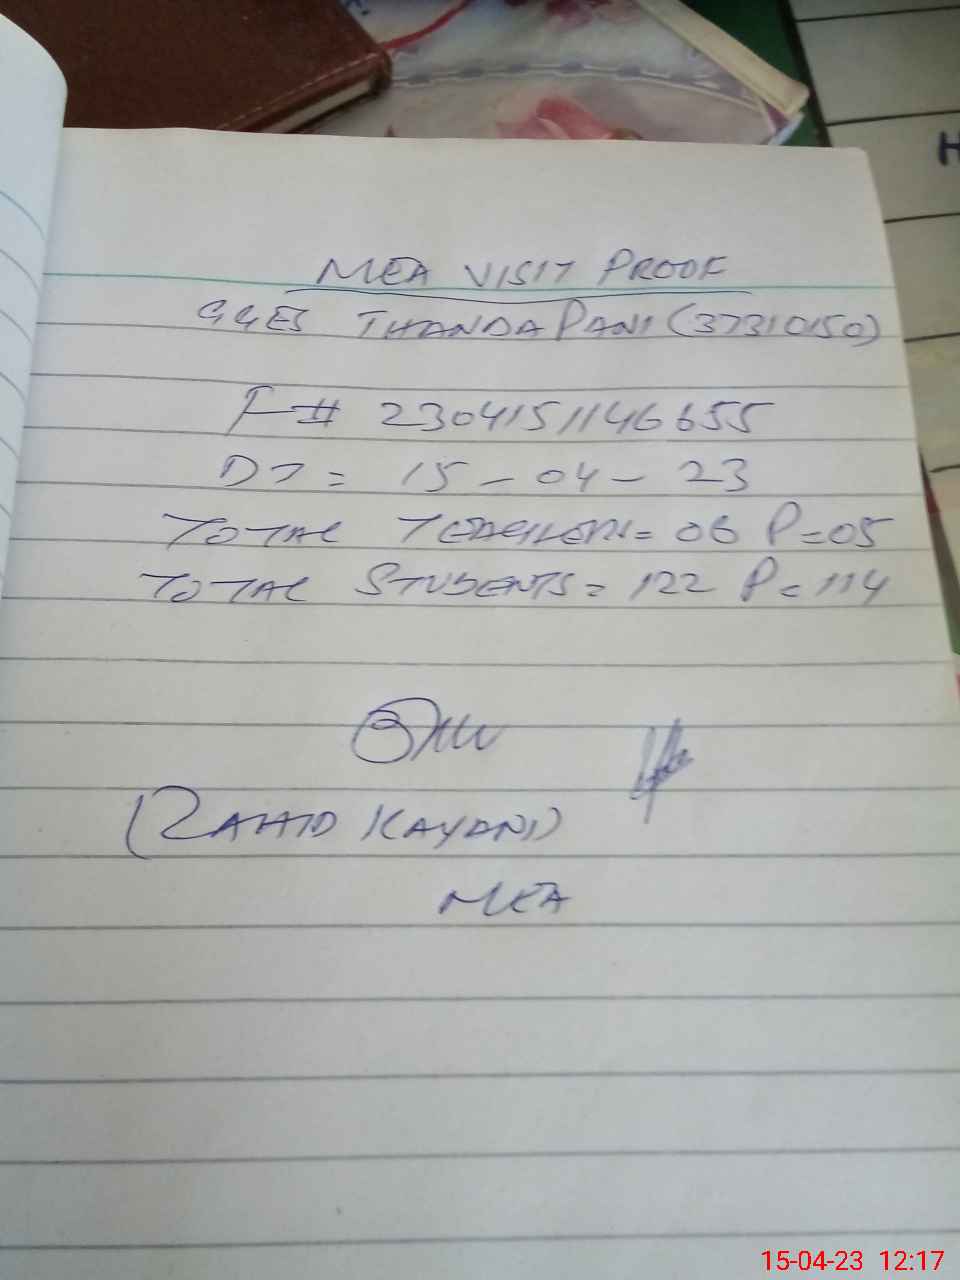 MEA VISIT PROOF
GGES THANDA PANI (37310150)
F# 2304151146655
DT = 15-04-23
TOTAL TEACHERS = 06 P=05
TOTAL STUDENTS = 122 P=114
(ZAHID KAYANI)
MEA
H
15-04-23 12:17